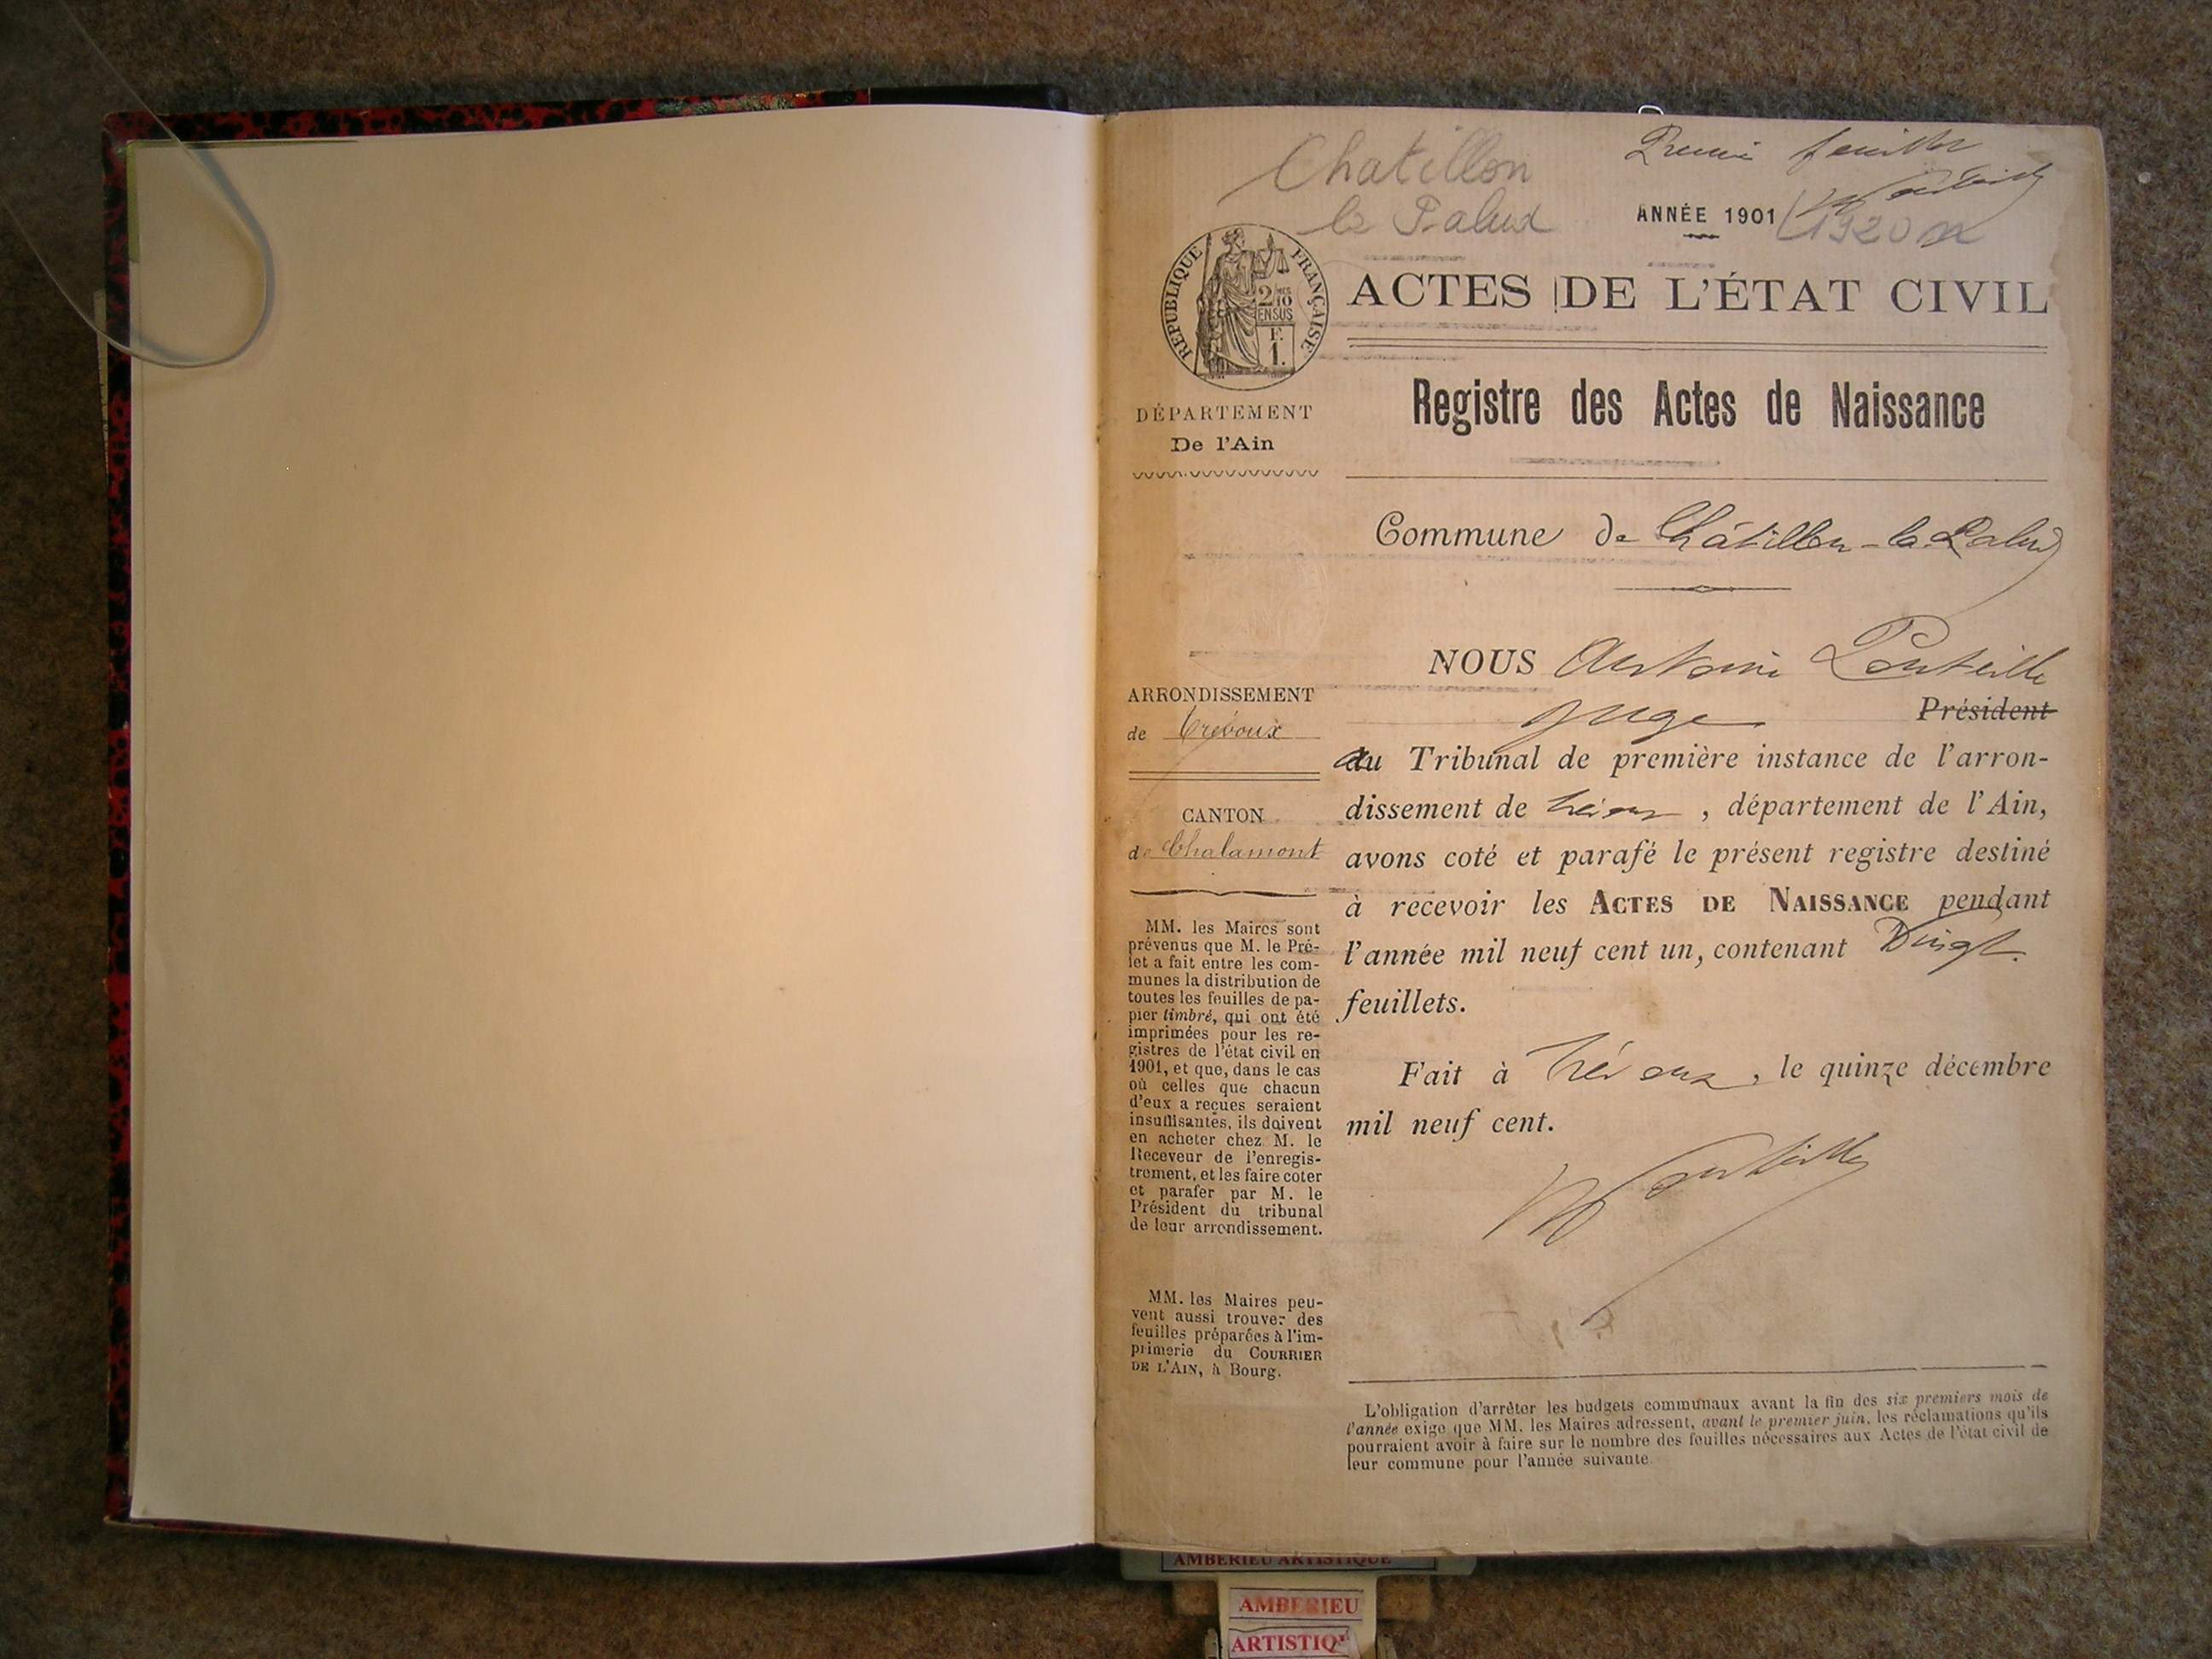 Chatillon
la Palud
Premier feuillet
ANNÉE 1901
(1920
RÉPUBLIQUE FRANÇAISE
2/10 MES
EN SUS
F.
1.
ACTES DE L'ÉTAT CIVIL
Registre des Actes de Naissance
DÉPARTEMENT
De l'Ain
Commune de Châtillon-la-Palud
NOUS Antoine Ponteille
juge Président
au Tribunal de première instance de l'arron-
dissement de Trévoux, département de l'Ain,
avons coté et parafé le présent registre destiné
à recevoir les ACTES DE NAISSANCE pendant
l'année mil neuf cent un, contenant Vingt
feuillets.
Fait à Trévoux, le quinze décembre
mil neuf cent.
Ponteille
ARRONDISSEMENT
de Trévoux
CANTON
de Chalamont
MM. les Maires sont
prévenus que M. le Pré-
fet a fait entre les com-
munes la distribution de
toutes les feuilles de pa-
pier timbré, qui ont été
imprimées pour les re-
gistres de l'état civil en
1901, et que, dans le cas
où celles que chacun
d'eux a reçues seraient
insuffisantes, ils doivent
en acheter chez M. le
Receveur de l'enregis-
trement, et les faire coter
et parafer par M. le
Président du tribunal
de leur arrondissement.
MM. les Maires peu-
vent aussi trouver des
feuilles préparées à l'im-
primerie du COURRIER
DE L'AIN, à Bourg.
L'obligation d'arrêter les budgets communaux avant la fin des six premiers mois de
l'année exige que MM. les Maires adressent, avant le premier juin, les réclamations qu'ils
pourraient avoir à faire sur le nombre des feuilles nécessaires aux Actes de l'état civil de
leur commune pour l'année suivante
AMBERIEU ARTISTIQUE
AMBERIEU
ARTISTIQ